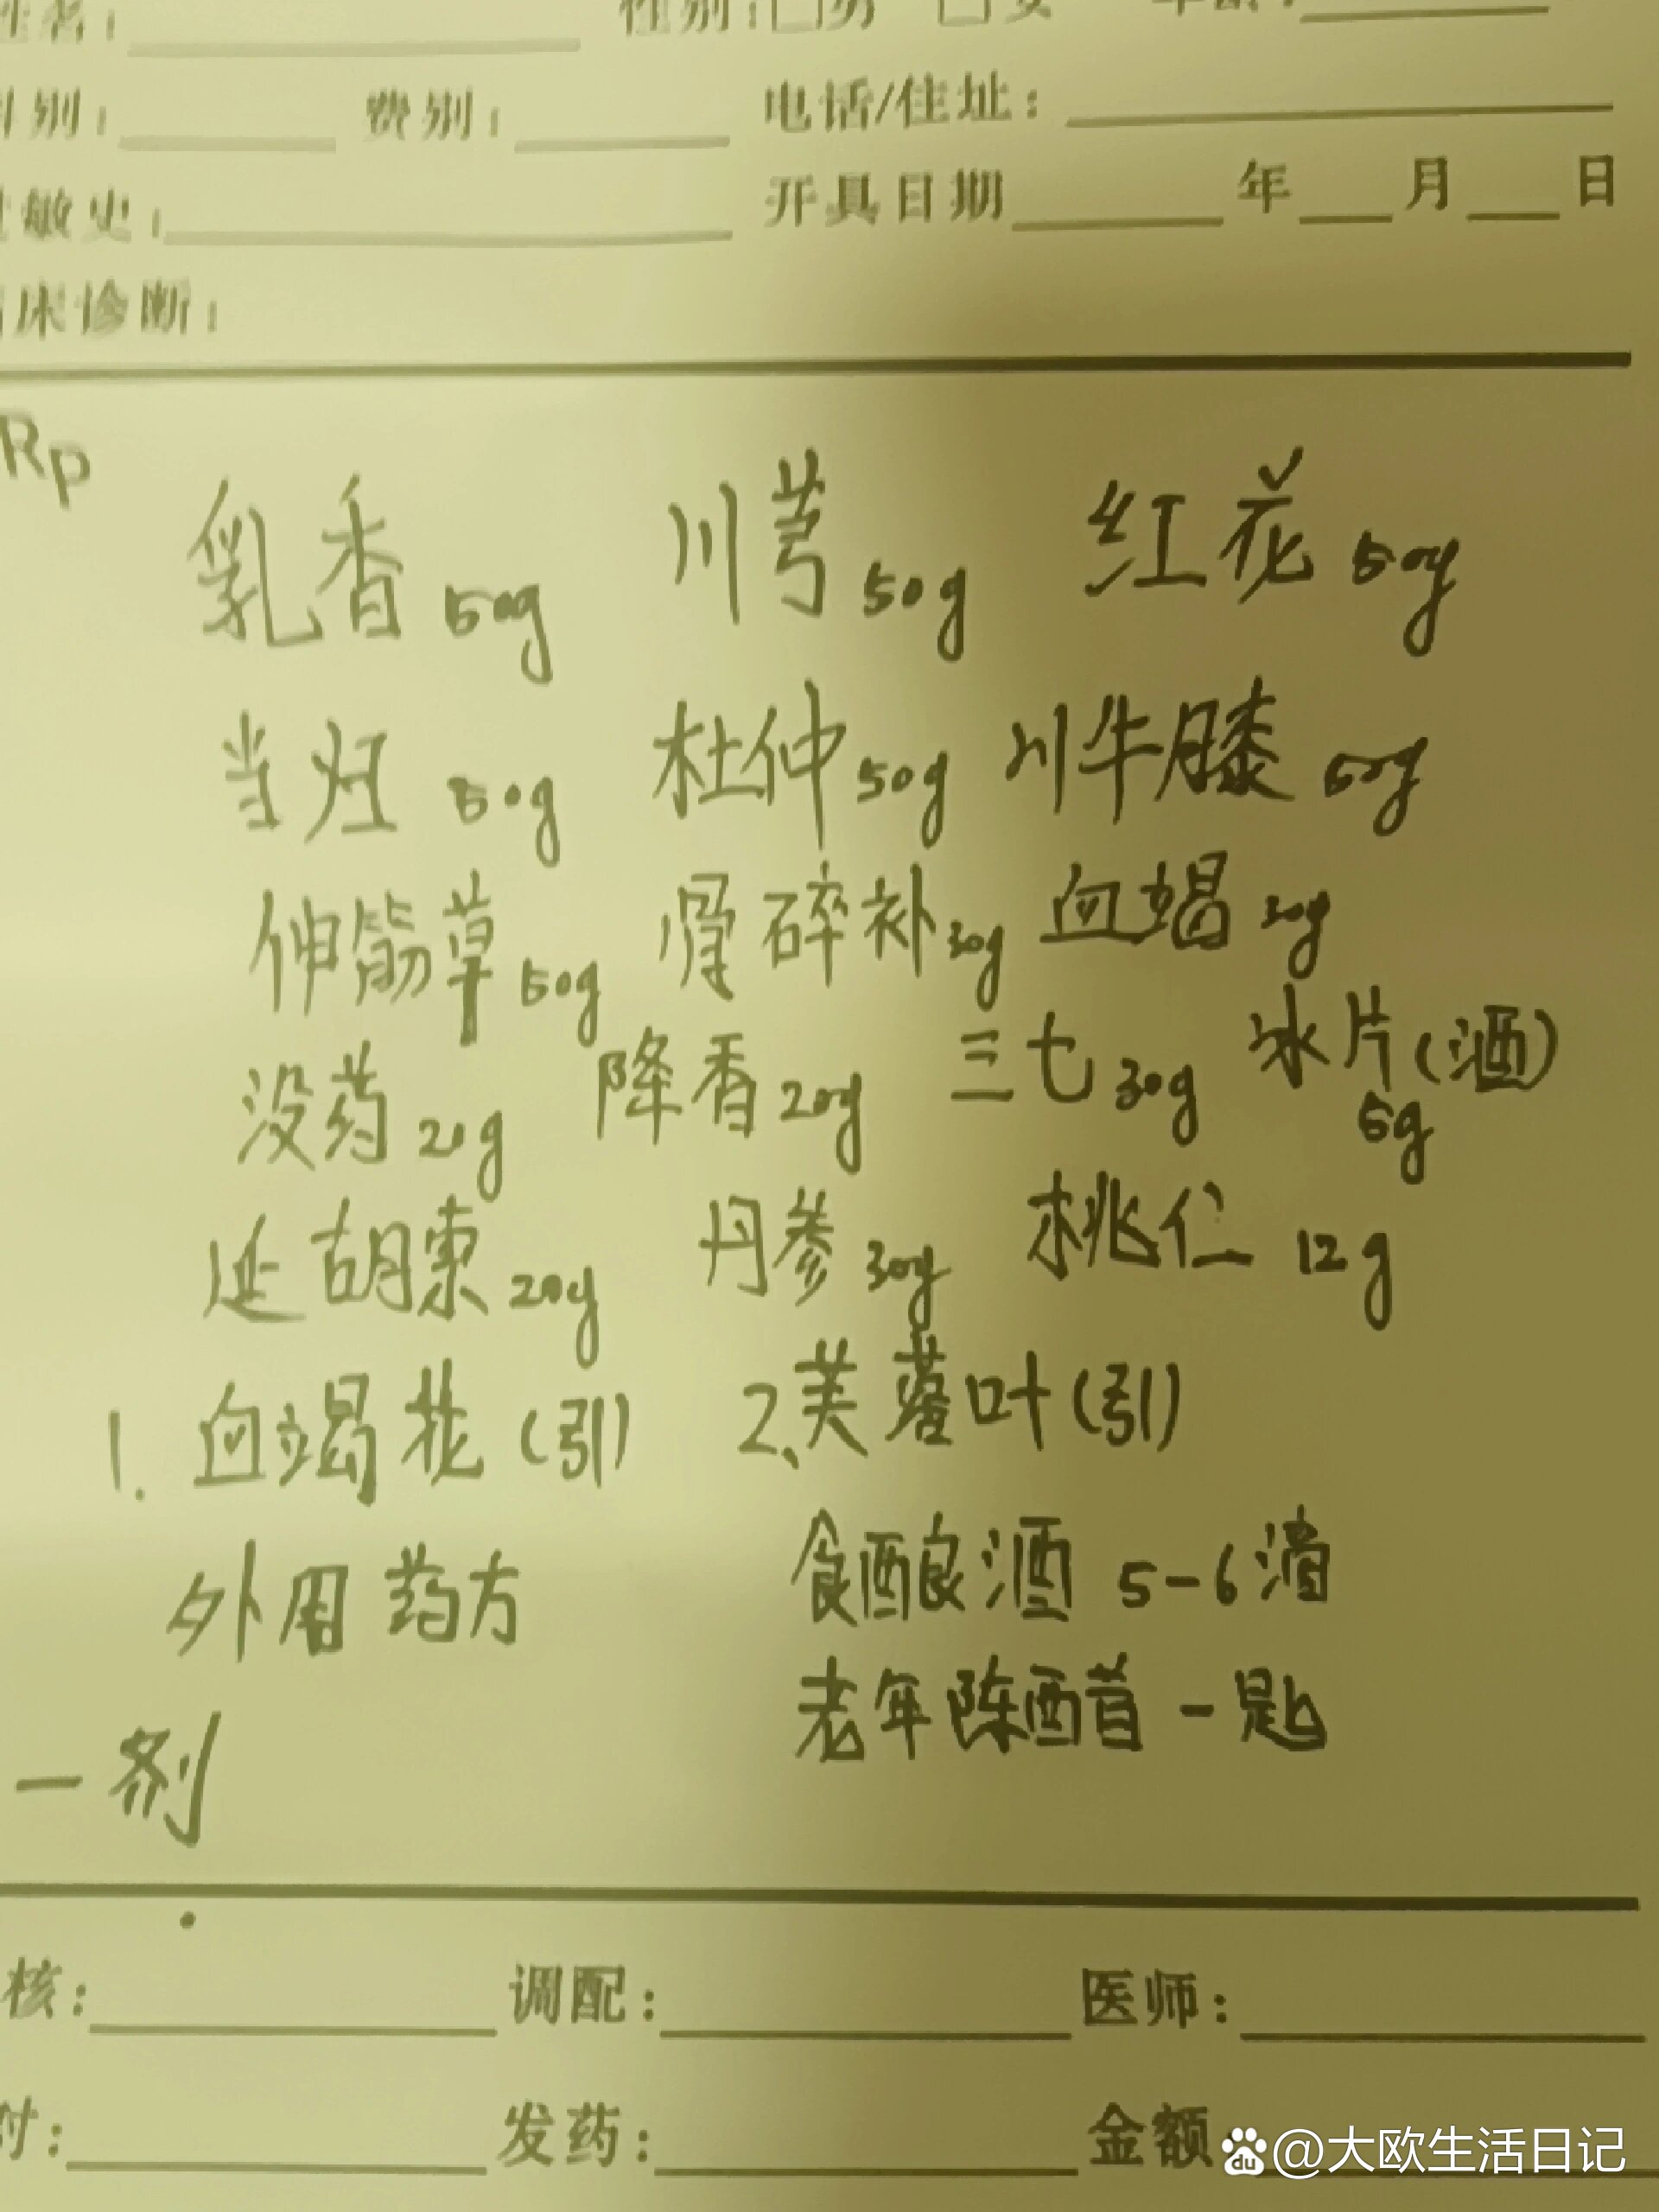 姓名: 性别:□男 □女 年龄:
科别: 费别: 电话/住址:
过敏史: 开具日期 年 月 日
临床诊断:
Rp
乳香50g 川芎50g 红花50g
当归50g 杜仲50g 川牛膝50g
伸筋草50g 骨碎补30g 血竭20g
没药20g 降香20g 三七30g 冰片(酒)5g
延胡索20g 丹参30g 桃仁12g
1. 血竭花(引) 2、芙蓉叶(引)
外用药方 食酿酒 5-6滴
老年陈醋 一匙
一剂
核: 调配: 医师:
付: 发药: 金额
du @大欧生活日记